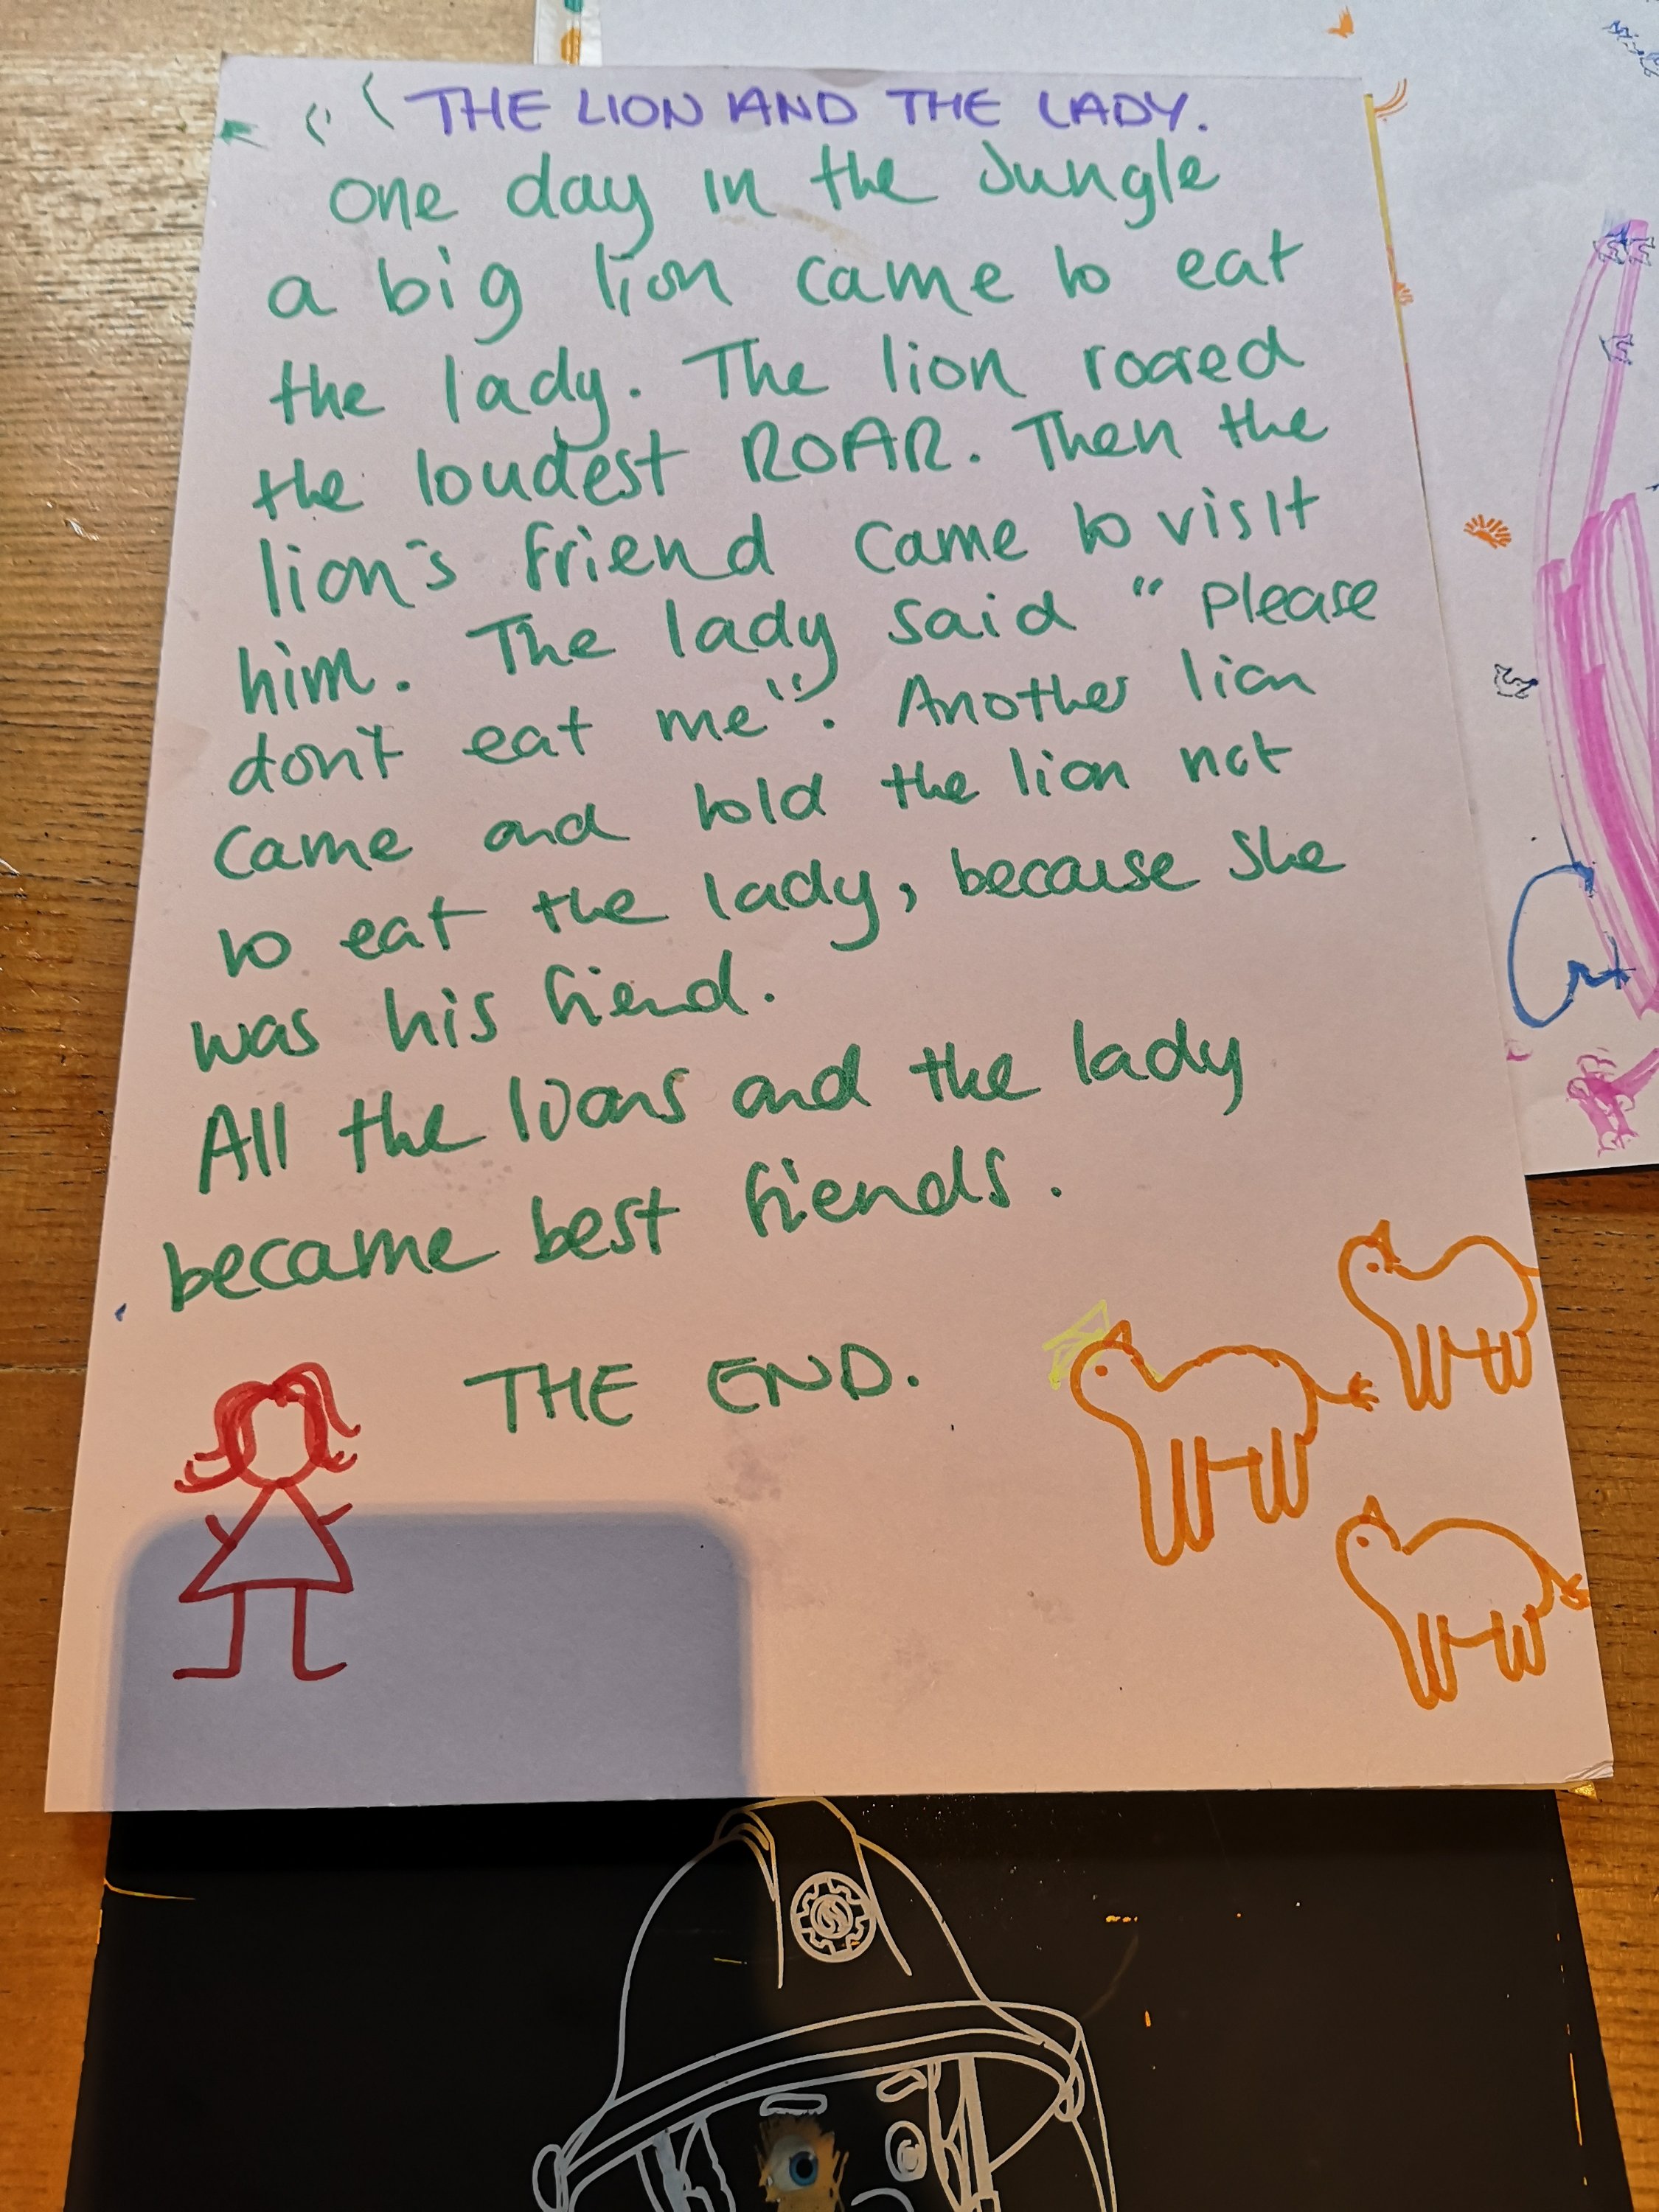 THE LION AND THE LADY.
One day in the Jungle
a big lion came to eat
the lady. The lion roared
the loudest ROAR. Then the
lion's friend came to visit
him. The lady said "Please
don't eat me". Another lion
came and told the lion not
to eat the lady, because she
was his friend.
All the lions and the lady
became best friends.
THE END.